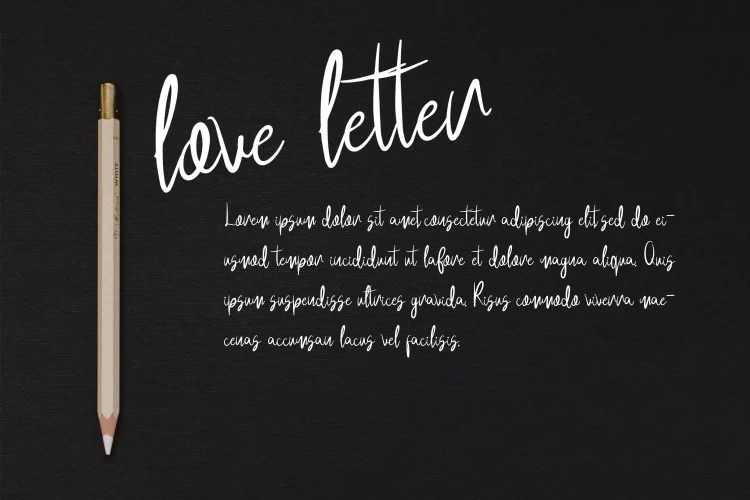 love letter
Lorem ipsum dolor sit amet consectetur adipiscing elit sed do ei-
usmod tempor incididunt ut labore et dolore magna aliqua. Quis
ipsum suspendisse ultrices gravida. Risus commodo viverra mae-
cenas accumsan lacus vel facilisis.
WHITE